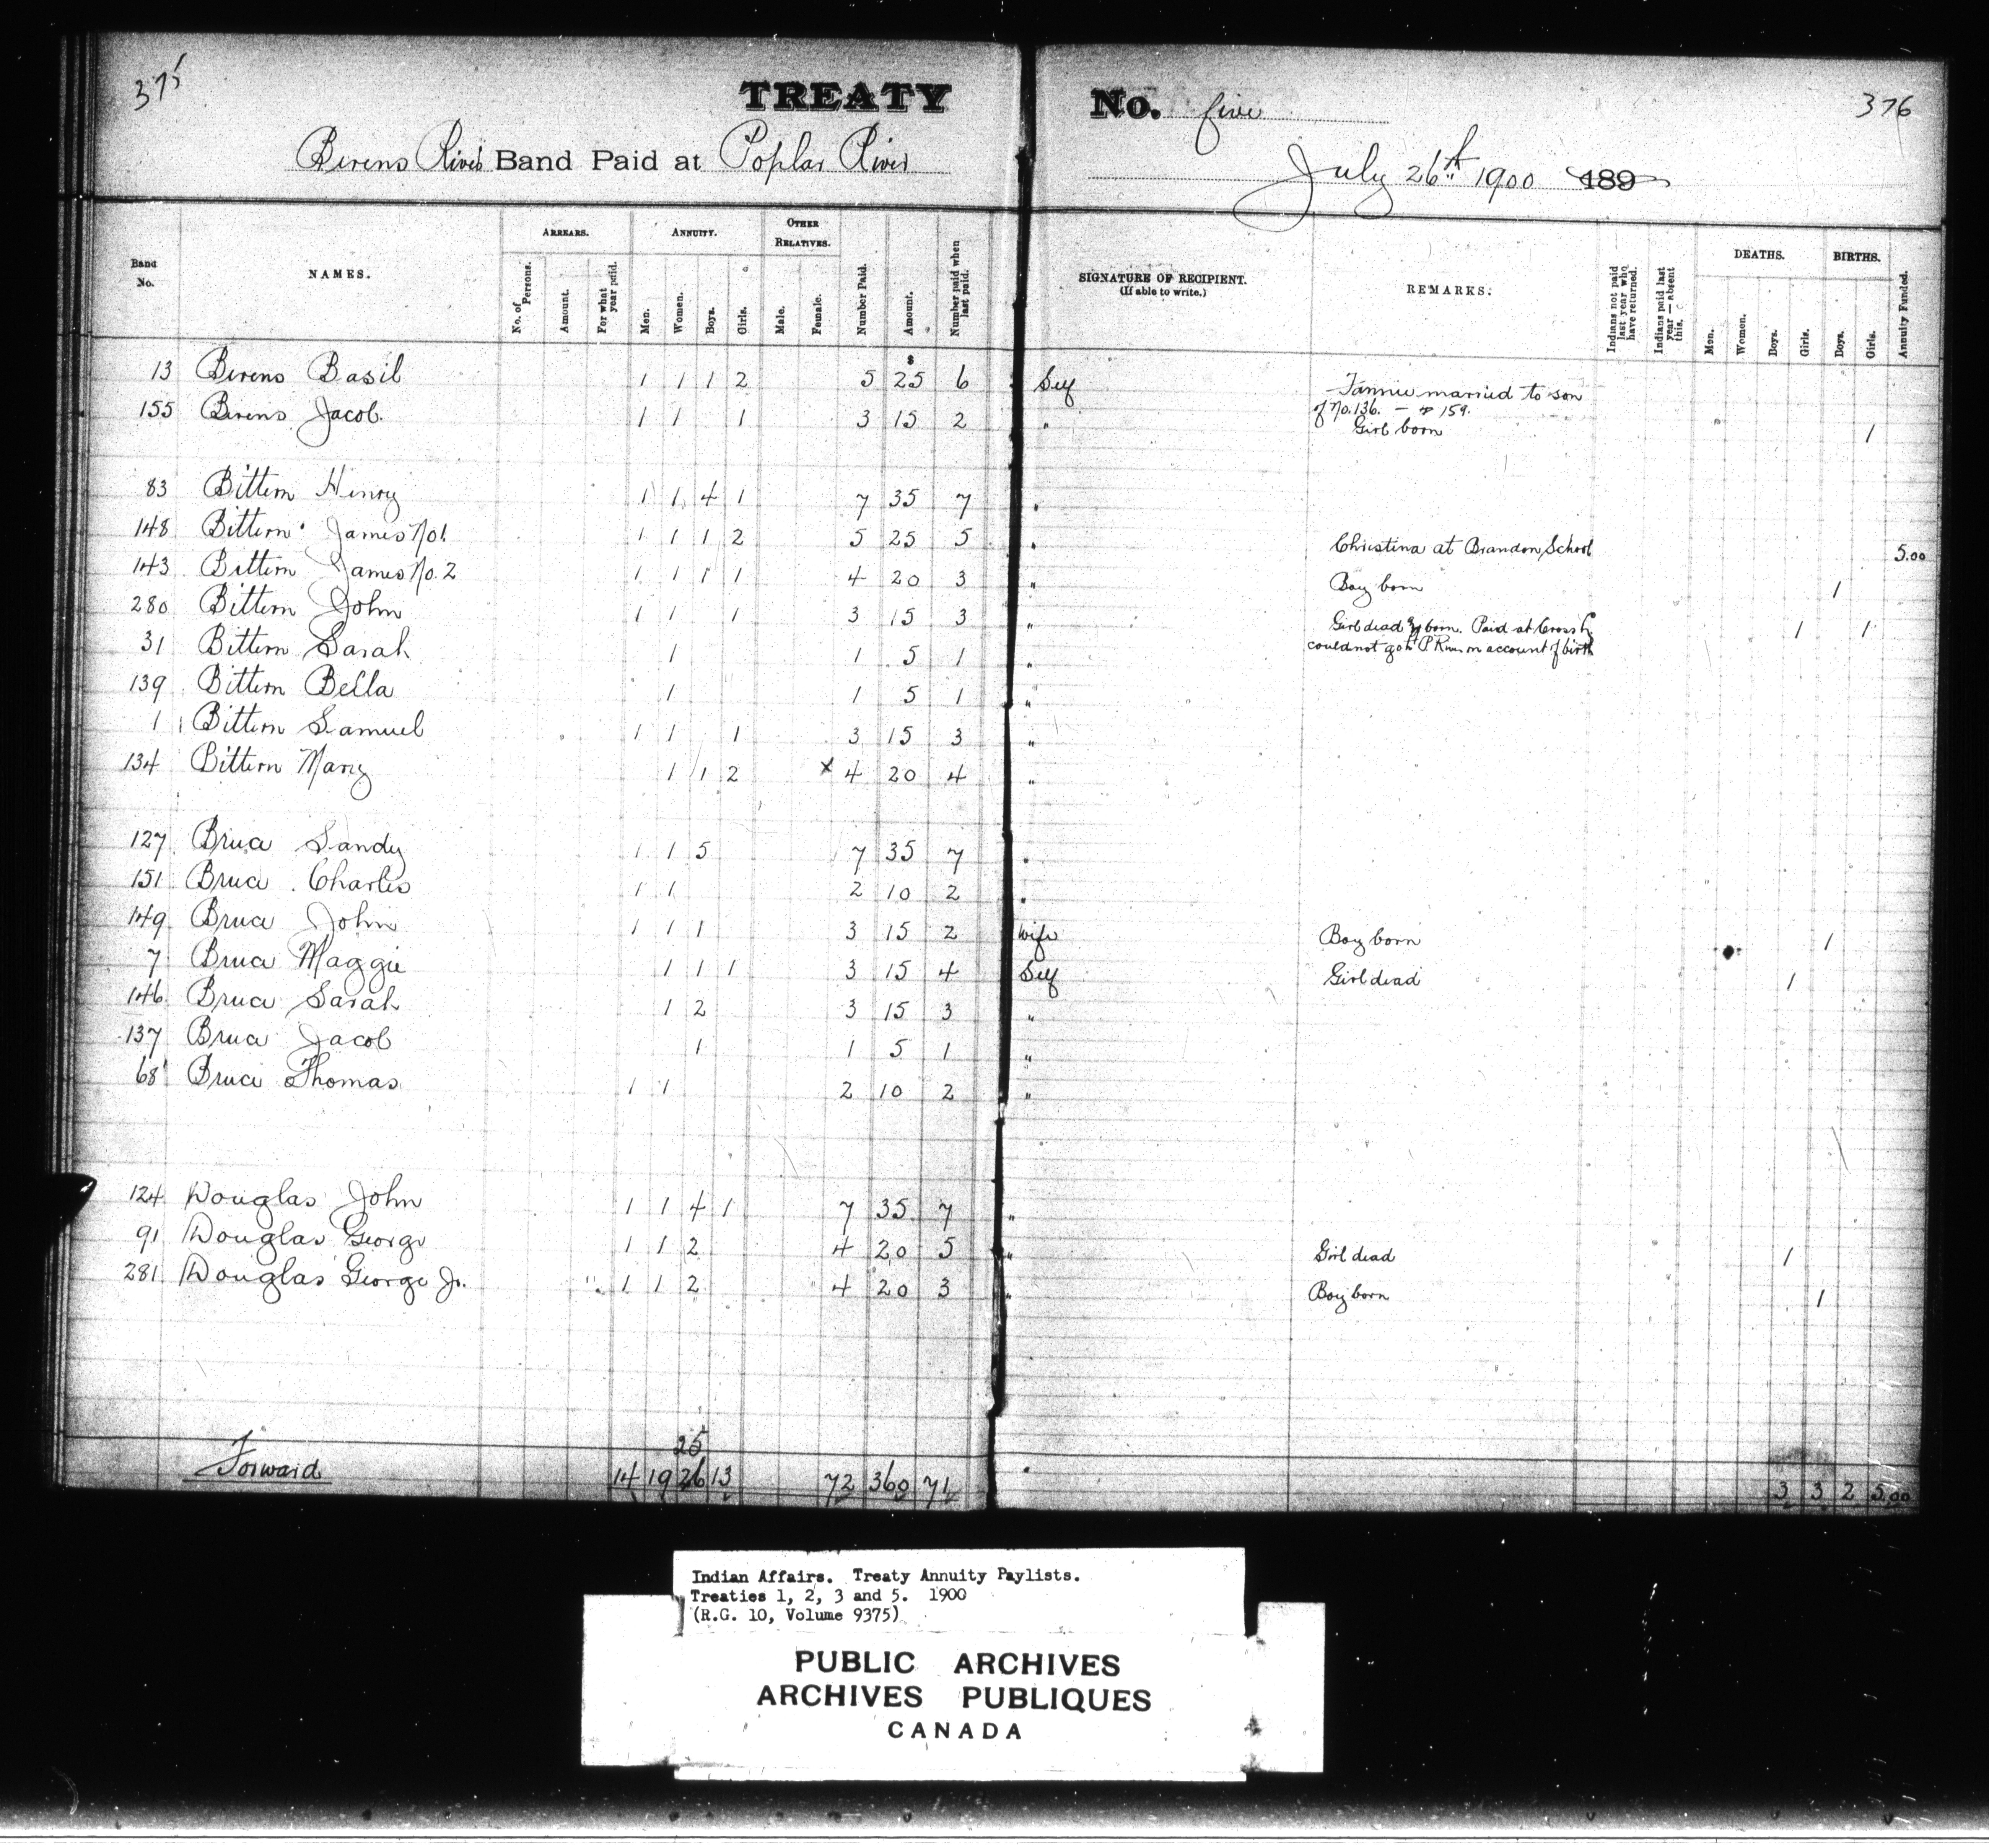 375
TREATY No. five
376
Berens River Band Paid at Poplar River
July 26th 1900 189
Band No.
NAMES.
ARREARS.
No. of Persons.
Amount.
For what year paid.
ANNUITY.
Men.
Women.
Boys.
Girls.
OTHER RELATIVES.
Male.
Female.
Number Paid.
Amount.
Number paid when last paid.
SIGNATURE OF RECIPIENT.
(If able to write.)
REMARKS.
Indians not paid last year who have returned.
Indians paid last year — absent this.
DEATHS.
Men.
Women.
Boys.
Girls.
BIRTHS.
Boys.
Girls.
Annuity Funded.
$
13 Berens Basil 1 1 1 2 5 25 6 Self Fannie married to son
of No. 136. — 159.
155 Berens Jacob. 1 1 1 3 15 2 " Girl born 1
83 Bittern Henry 1 1 4 1 7 35 7 "
148 Bittern James No 1. 1 1 1 2 5 25 5 " Christina at Brandon School 5.00
143 Bittern James No. 2 1 1 1 1 4 20 3 " Boy born 1
280 Bittern John 1 1 1 3 15 3 " Girl dead born. Paid at Cross 1 1
could not go to P River on account of birth
31 Bittern Sarah 1 1 5 1 "
139 Bittern Bella 1 1 5 1 "
1 Bittern Samuel 1 1 1 3 15 3 "
134 Bittern Mary 1 1 2 x 4 20 4 "
127 Bruce Sandy 1 1 5 7 35 7 "
151 Bruce Charles 1 1 2 10 2 "
149 Bruce John 1 1 1 3 15 2 Wife Boy born 1
7 Bruce Maggie 1 1 1 3 15 4 Self Girl dead 1
146 Bruce Sarah 1 2 3 15 3 "
137 Bruce Jacob 1 1 5 1 "
68 Bruce Thomas 1 1 2 10 2 "
124 Douglas John 1 1 4 1 7 35 7 "
91 Douglas George 1 1 2 4 20 5 " Girl dead 1
281 Douglas George Jr. 1 1 2 4 20 3 " Boy born 1
25
Forward 14 19 26 13 72 360 71 3 3 2 5.00
Indian Affairs. Treaty Annuity Paylists.
Treaties 1, 2, 3 and 5. 1900
(R.G. 10, Volume 9375)
PUBLIC ARCHIVES
ARCHIVES PUBLIQUES
CANADA